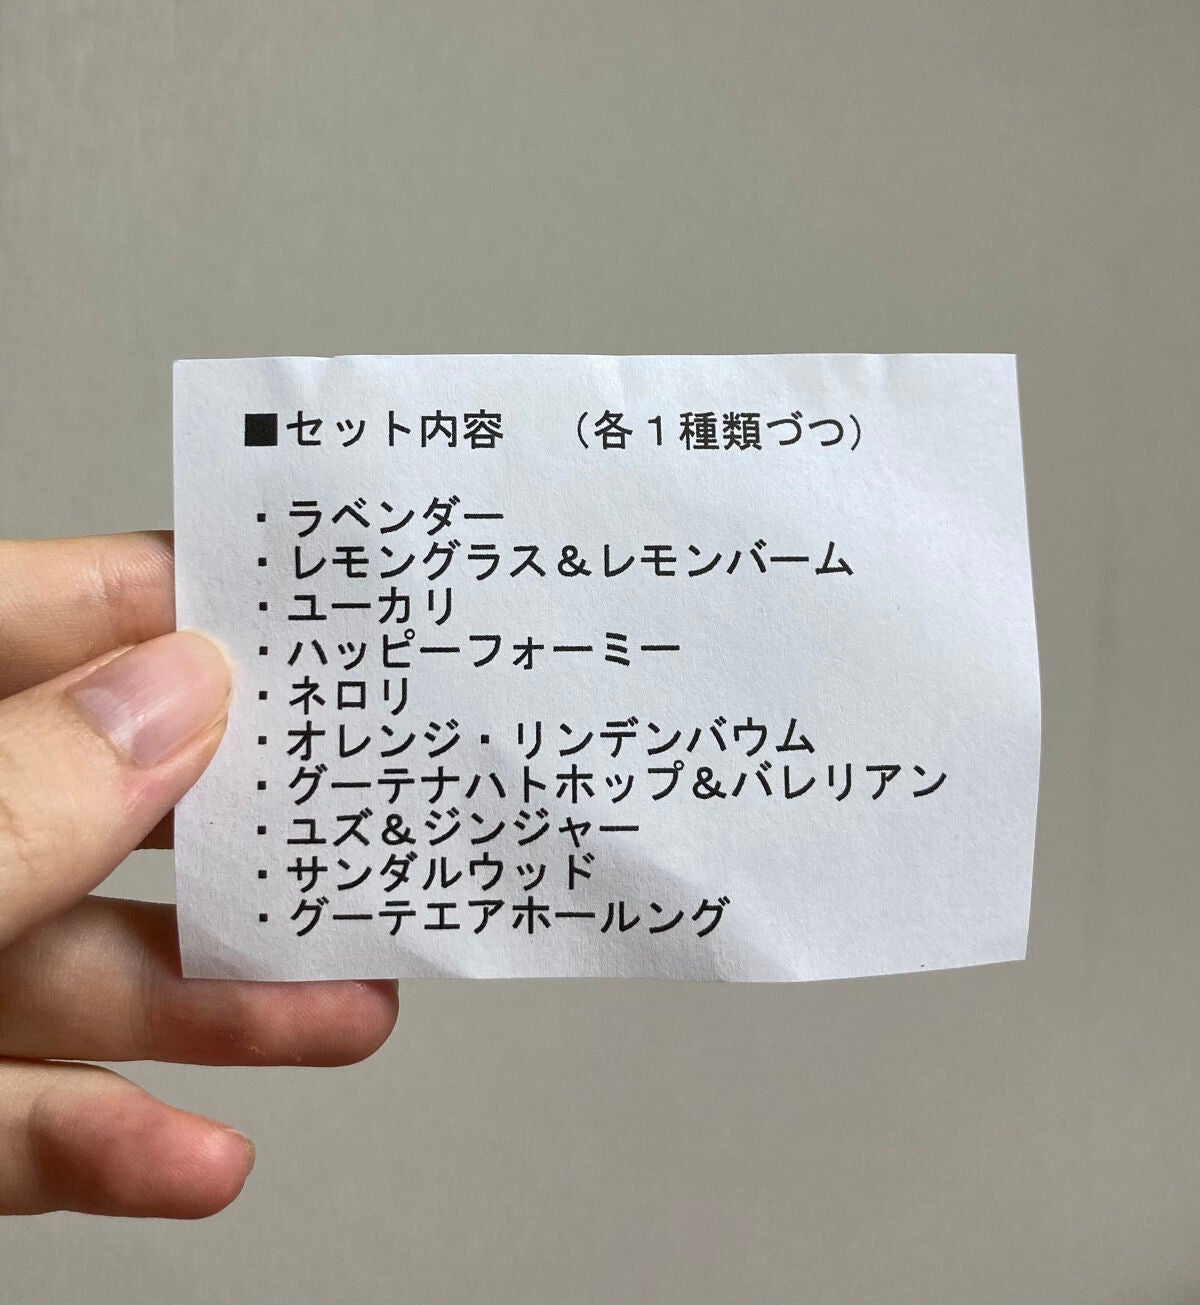 ■セット内容　（各１種類づつ）
・ラベンダー
・レモングラス＆レモンバーム
・ユーカリ
・ハッピーフォーミー
・ネロリ
・オレンジ・リンデンバウム
・グーテナハトホップ＆バレリアン
・ユズ＆ジンジャー
・サンダルウッド
・グーテエアホールング